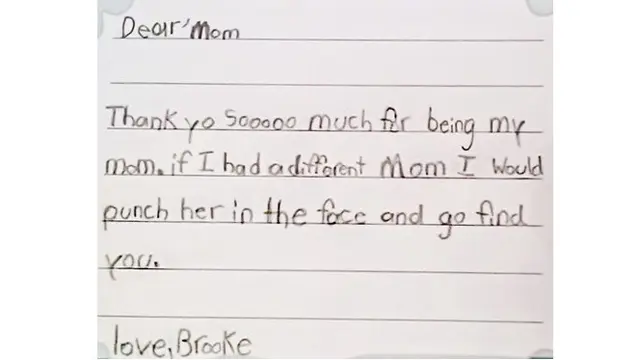 Dear' Mom
Thank yo sooooo much for being my
mom. if I had a different Mom I would
punch her in the face and go find
you.
love, Brooke